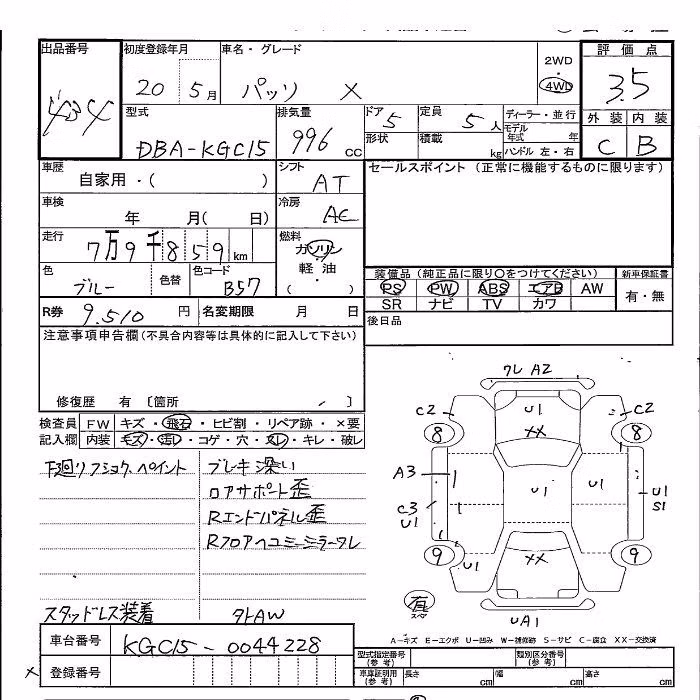 出品番号 初度登録年月 車名・グレード 2WD 評価点
484 20 5月 パッソ X 4WD 3.5
型式 排気量 ドア 5 定員 5人 ディーラー・並行 外装 内装
DBA-KGC15 996 cc 形状 積載 kg モデル年式 年 C B
ハンドル 左・右
車歴 自家用・( ) シフト AT セールスポイント (正常に機能するものに限ります)
車検 年 月( 日) 冷房 AC
走行 7万9千859km 燃料 ガソリン
軽油
( ・ )
色 ブルー 色替 色コード B57 装備品 (純正品に限り〇をつけてください) 新車保証書
PS PW ABS エアB AW 有・無
R券 9.510 円 名変期限 月 日 SR ナビ TV カワ
注意事項申告欄(不具合内容等は具体的に記入して下さい) 後日品
修復歴 有 〔箇所 〕
検査員 FW キズ・飛石・ヒビ割・リペア跡・×要
記入欄 内装 キズ・汚レ・コゲ・穴・スレ・キレ・破レ
下廻リフショク、ペイント ブレーキ深い
ロアサポート歪
Rエンドパネル歪
Rフロアヘコミ
スタッドレス装着 外AW
ワレ A2
C2 U1 C2
8 XX 8
A3 U1 U1 U1
C3 S1
U1
9 U1 XX 9
有
スペア
UA1
A-キズ E-エクボ U-凹み W-補修跡 S-サビ C-腐立 XX-交換済
車台番号 KGC15-0044228 型式指定番号(参考) 類別区分番号(参考)
× 登録番号 車庫証明用(参考) 長さ cm 幅 cm 高さ cm